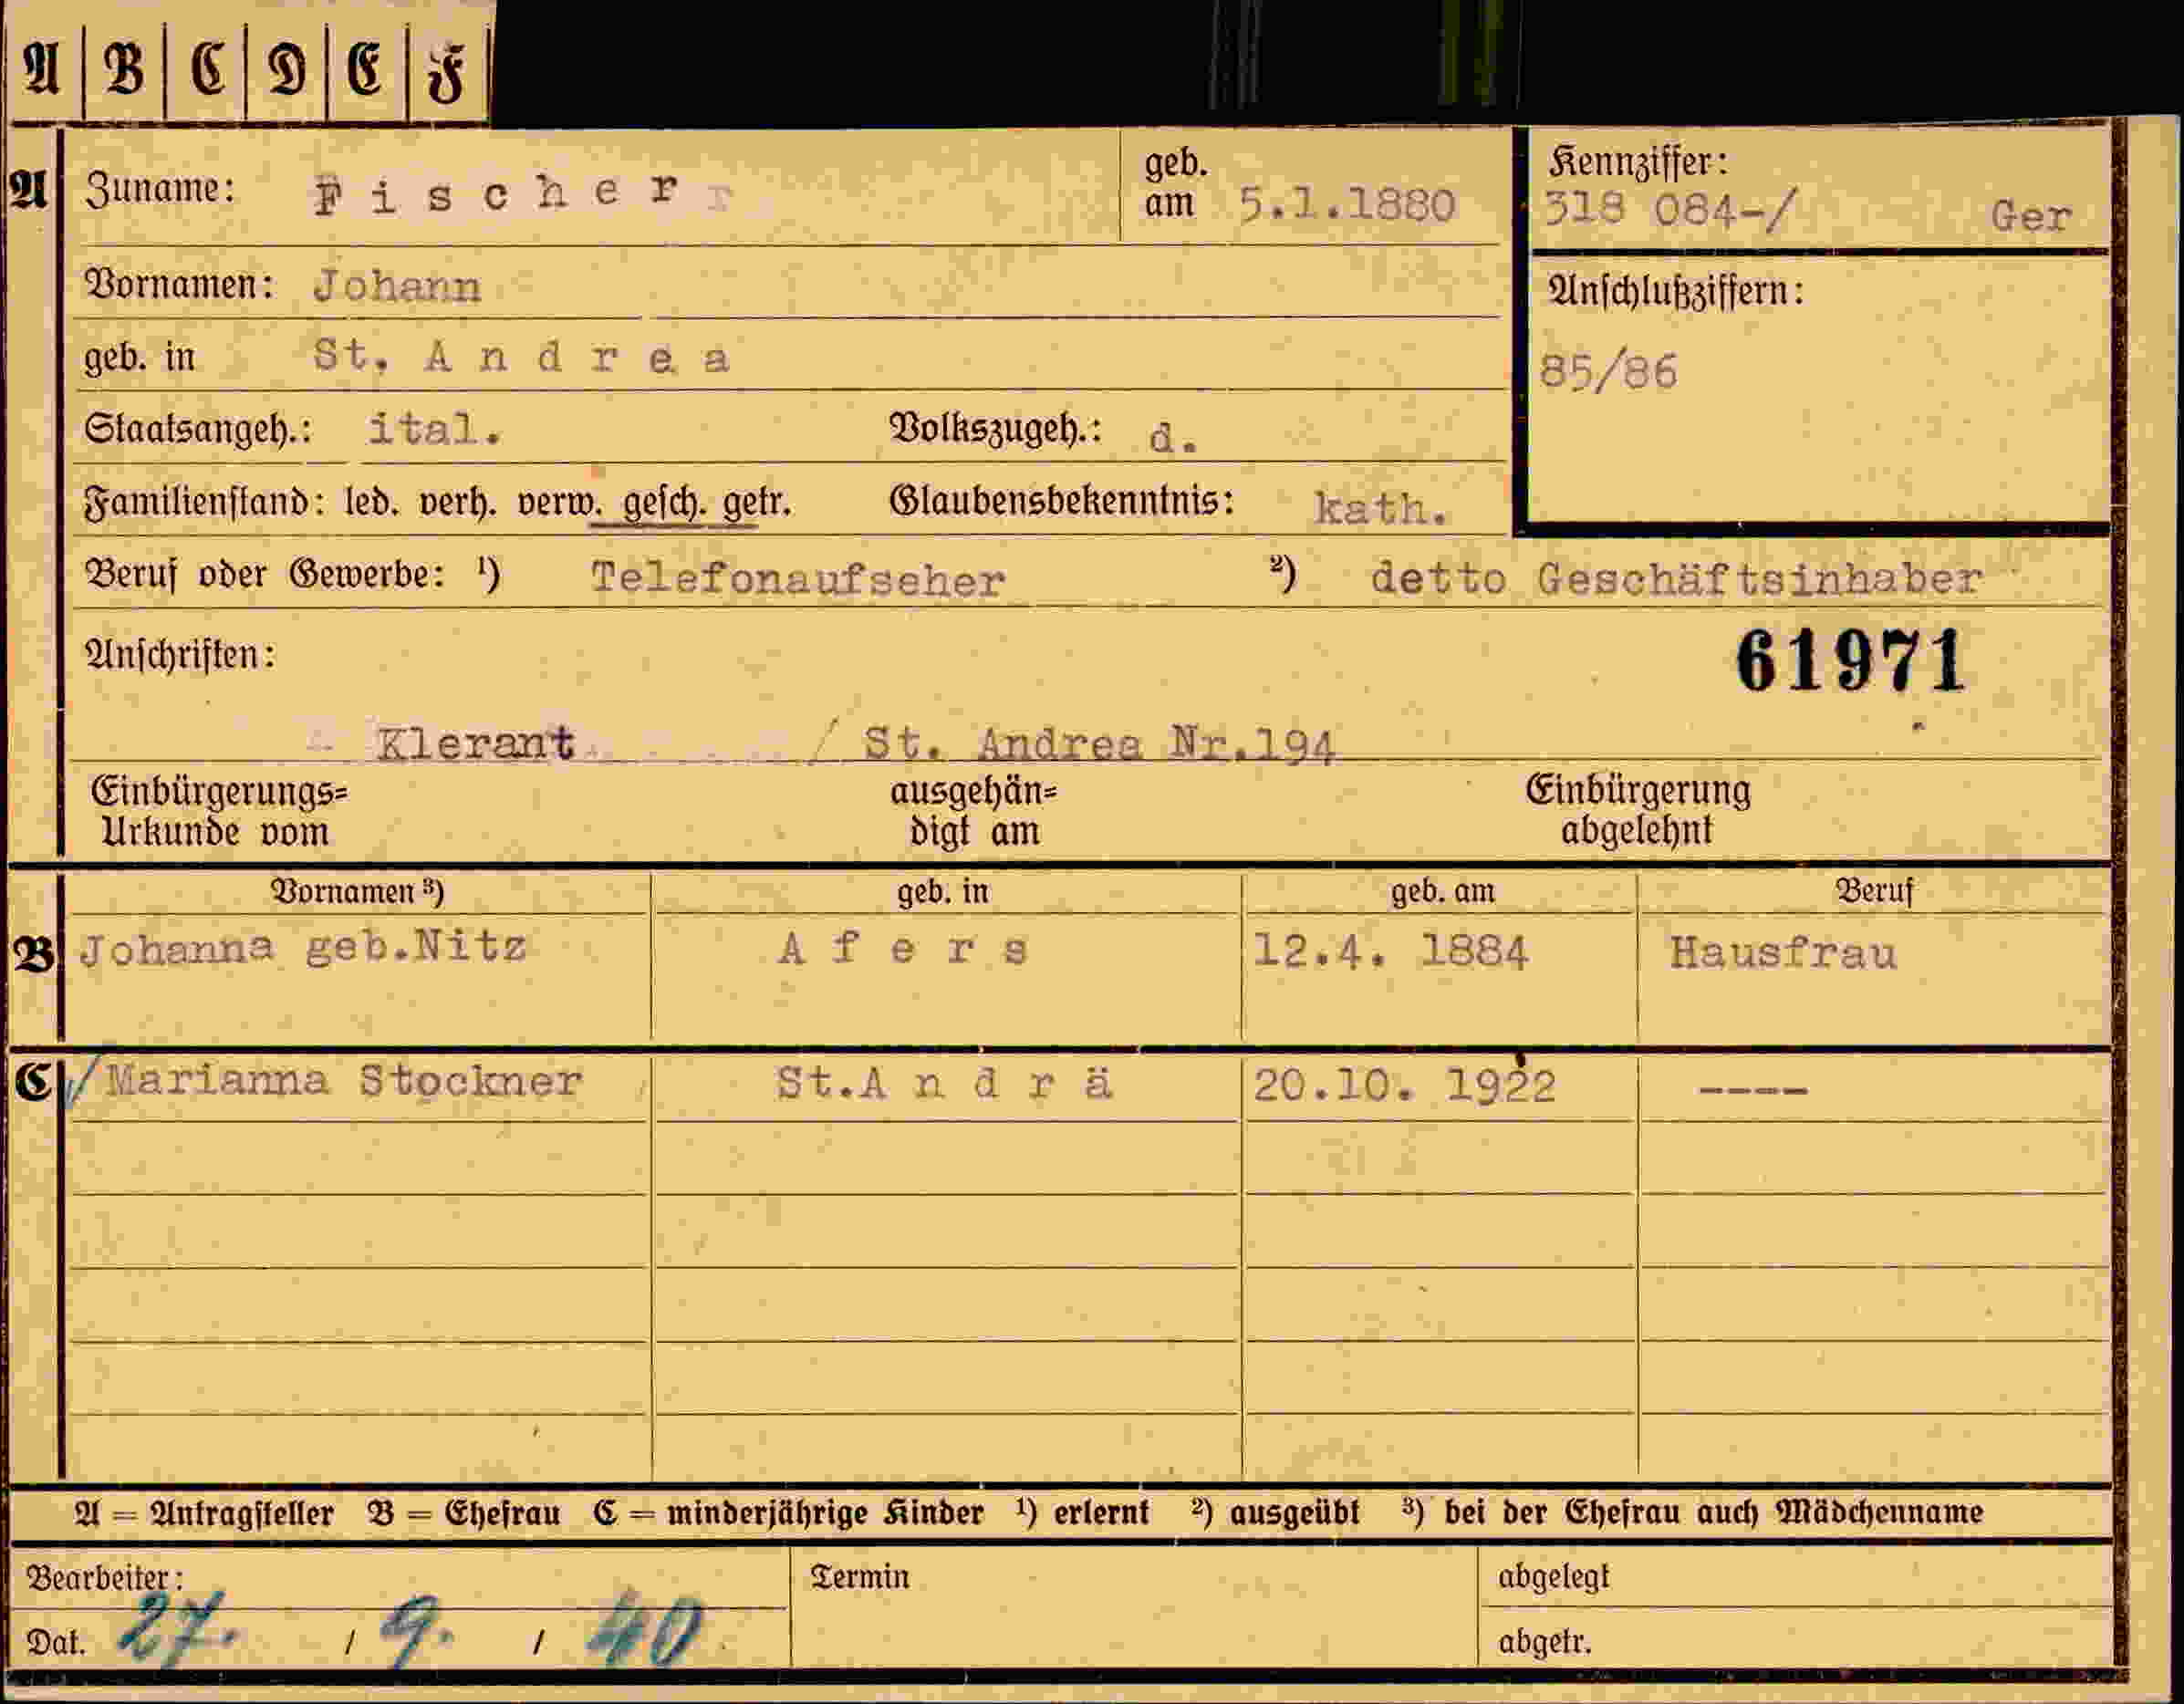 A B C D E F
A Zuname: Fischer geb. am 5.1.1880 Kennziffer: 318 084-/ Ger
Vornamen: Johann Anschlußziffern:
geb. in St. Andrea 85/86
Staatsangeh.: ital. Volkszugeh.: d.
Familienstand: led. verh. verw. gesch. getr. Glaubensbekenntnis: kath.
Beruf oder Gewerbe: ¹) Telefonaufseher ²) detto Geschäftsinhaber
Anschriften: 61971
Klerant / St. Andrea Nr.194
Einbürgerungs= ausgehän= Einbürgerung
Urkunde vom digt am abgelehnt
Vornamen ³) geb. in geb. am Beruf
B Johanna geb.Nitz Afers 12.4. 1884 Hausfrau
C / Marianna Stockner St.Andrä 20.10. 1922 ----
A = Antragsteller B = Ehefrau C = minderjährige Kinder ¹) erlernt ²) ausgeübt ³) bei der Ehefrau auch Mädchenname
Bearbeiter: Termin abgelegt
Dat. 27. / 9. / 40 abgetr.